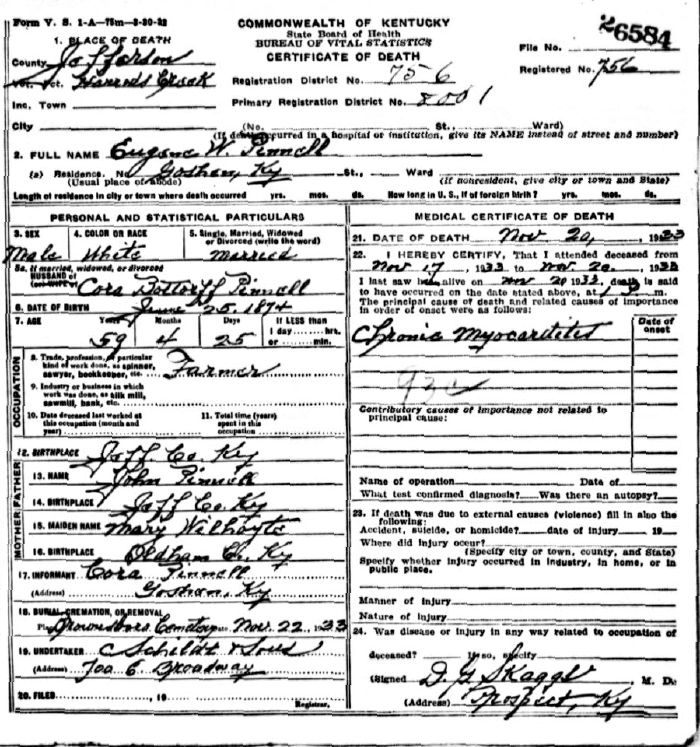 Form V. S. 1-A—75m—3-30-32
COMMONWEALTH OF KENTUCKY
State Board of Health
BUREAU OF VITAL STATISTICS
CERTIFICATE OF DEATH
File No. 26584
Registered No. 756
1. PLACE OF DEATH
County Jefferson
Vot. Pct. Harrods Creek
Inc. Town
City
Registration District No. 756
Primary Registration District No. 8001
(No. St., Ward)
(If death occurred in a hospital or institution, give its NAME instead of street and number)
2. FULL NAME Eugene W. Pinnell
(a) Residence. No. Goshen, Ky St., Ward
(Usual place of abode) (If nonresident, give city or town and State)
Length of residence in city or town where death occurred yrs. mos. ds. How long in U. S., if of foreign birth? yrs. mos. ds.
PERSONAL AND STATISTICAL PARTICULARS
3. SEX 4. COLOR OR RACE 5. Single, Married, Widowed or Divorced (write the word)
Male White Married
5a. If married, widowed, or divorced
HUSBAND of
(or) WIFE of Cora Bottorff Pinnell
6. DATE OF BIRTH June 25, 1874
7. AGE Years Months Days If LESS than
1 day hrs.
59 4 25 or min.
OCCUPATION
8. Trade, profession, or particular
kind of work done, as spinner,
sawyer, bookkeeper, etc. Farmer
9. Industry or business in which
work was done, as silk mill,
sawmill, bank, etc.
10. Date deceased last worked at
this occupation (month and
year)
11. Total time (years)
spent in this
occupation
12. BIRTHPLACE Jeff Co. Ky
FATHER
13. NAME John Pinnell
14. BIRTHPLACE Jeff Co. Ky
MOTHER
15. MAIDEN NAME Mary Wilhoyte
16. BIRTHPLACE Oldham Co. Ky
17. INFORMANT Cora Pinnell
(Address) Goshen, Ky
18. BURIAL, CREMATION, OR REMOVAL
Place Brownsboro Cemetery Date Nov. 22, 1933
19. UNDERTAKER C Schildt & Sons
(Address) E. Broadway
20. FILED , 19
Registrar.
MEDICAL CERTIFICATE OF DEATH
21. DATE OF DEATH Nov 20, 1933
22. I HEREBY CERTIFY, That I attended deceased from
Nov 17, 1933 to Nov. 20, 1933
I last saw h alive on Nov 20 1933, death is said
to have occurred on the date stated above, at m.
The principal cause of death and related causes of importance
in order of onset were as follows:
Date of
onset
Chronic Myocarditis
93c
Contributory causes of importance not related to
principal cause:
Name of operation Date of
What test confirmed diagnosis? Was there an autopsy?
23. If death was due to external causes (violence) fill in also the
following:
Accident, suicide, or homicide? date of injury 19
Where did injury occur?
(Specify city or town, county, and State)
Specify whether injury occurred in industry, in home, or in
public place.
Manner of injury
Nature of injury
24. Was disease or injury in any way related to occupation of
deceased? If so, specify
(Signed) D. G. Skaggs M. D.
(Address) Prospect, Ky